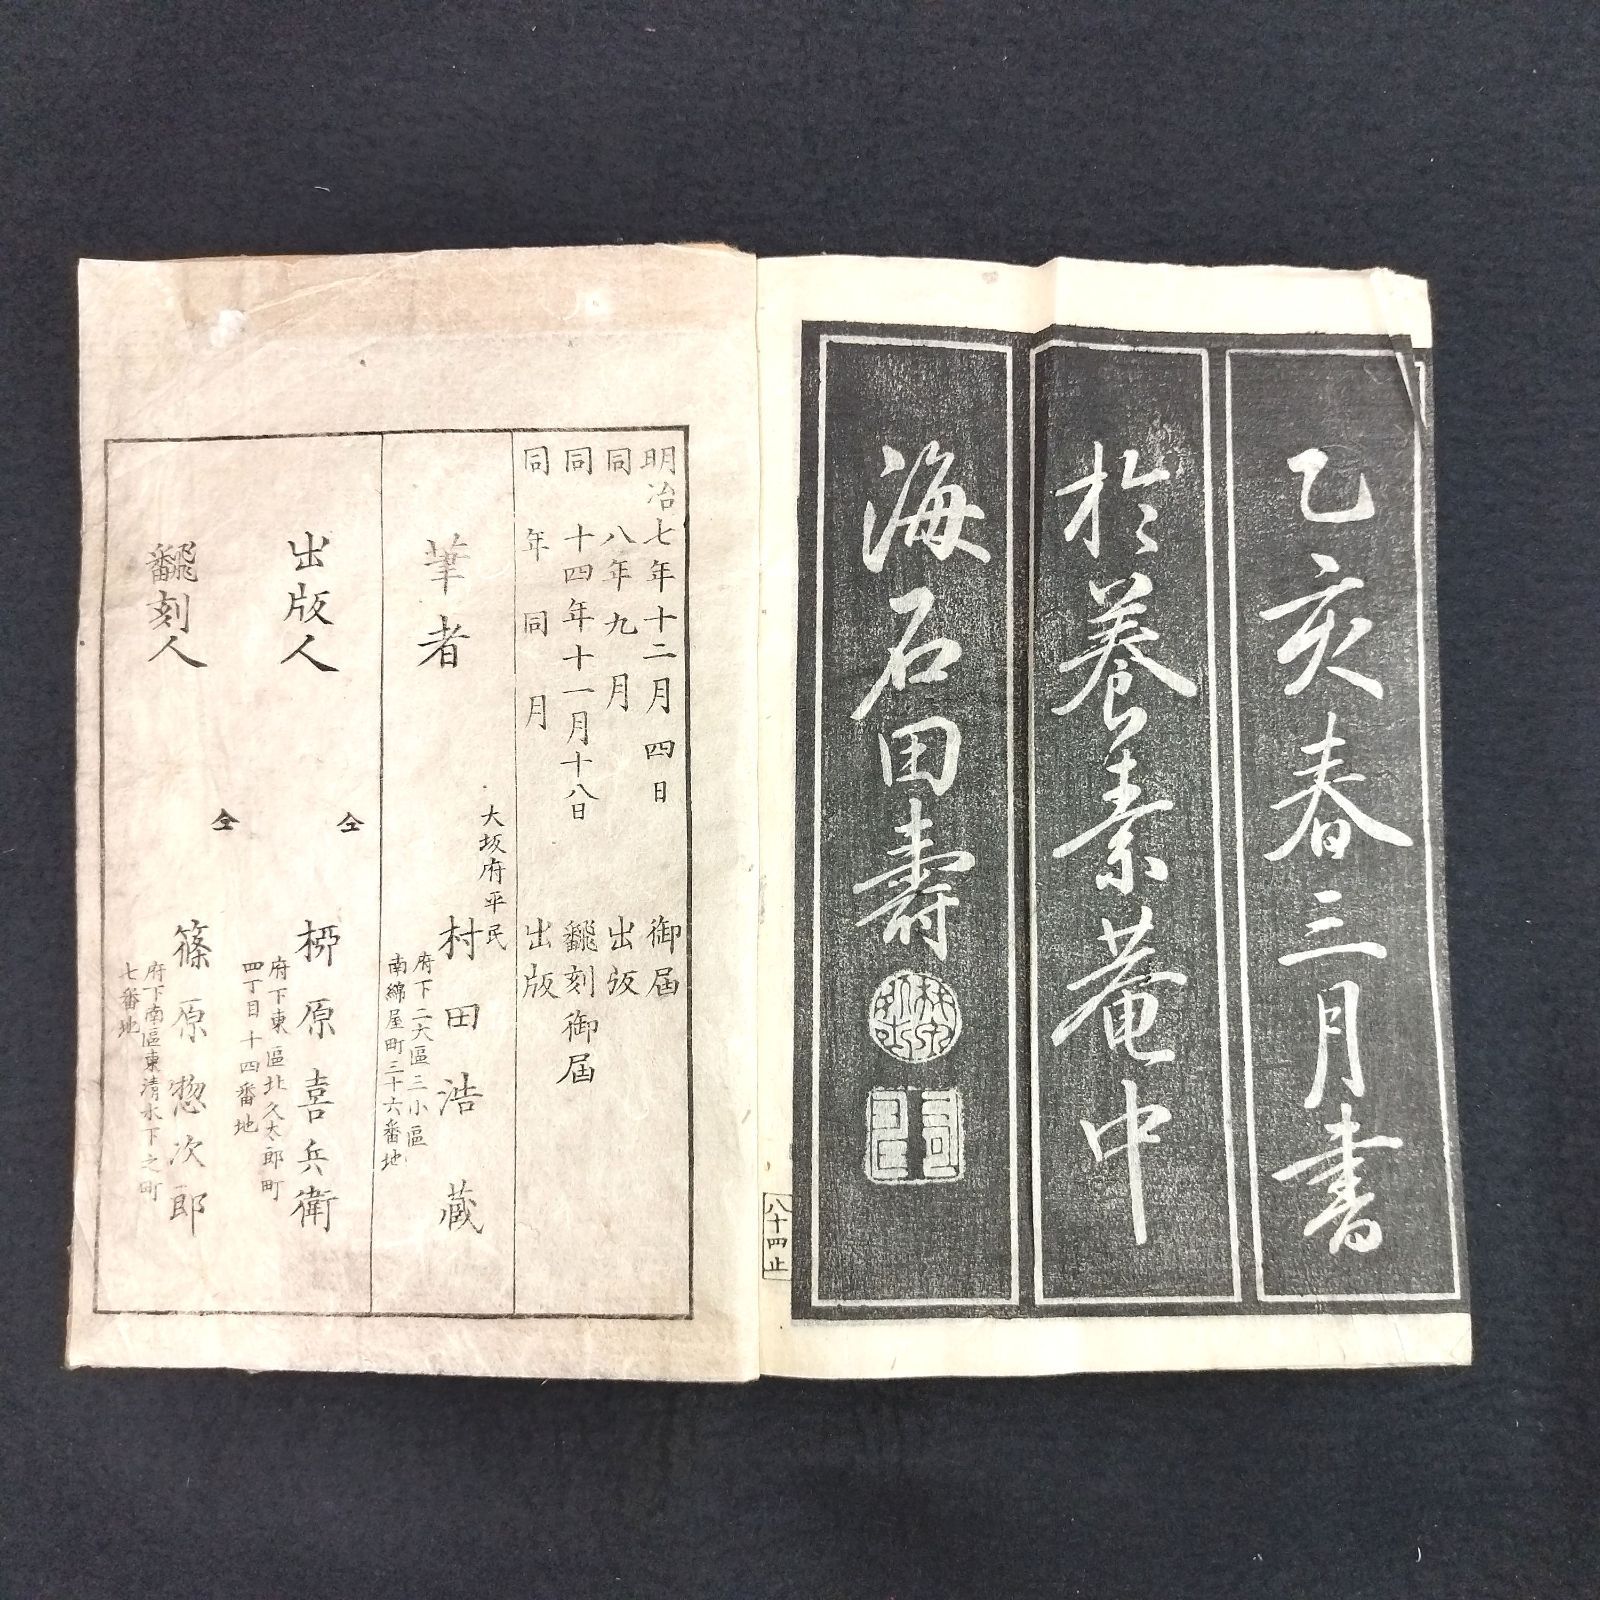 乙亥春三月書
於養素菴中
海石田壽
八十四止
明治七年十二月四日 御屆
同 八年九月 出版
同 十四年十一月十八日 飜刻御屆
同 年 同 月 出版
大坂府平民
筆者 村田浩藏
府下二大區三小區
南綿屋町三十六番地
仝
出版人 栁原喜兵衛
府下東區北久太郎町
四丁目十四番地
仝
飜刻人 篠原惣次郎
府下南區東清水下之町
七番地